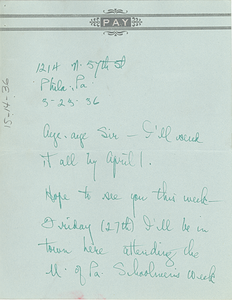 PAY
1214 N. 57th St
Phila. Pa
3-23-36
15-14-36
Aye-aye Sir — I'll send
it all by April 1.
Hope to see you this week-
Friday (27th) I'll be in
town here attending the
U. of Pa. Schoolmen's Week